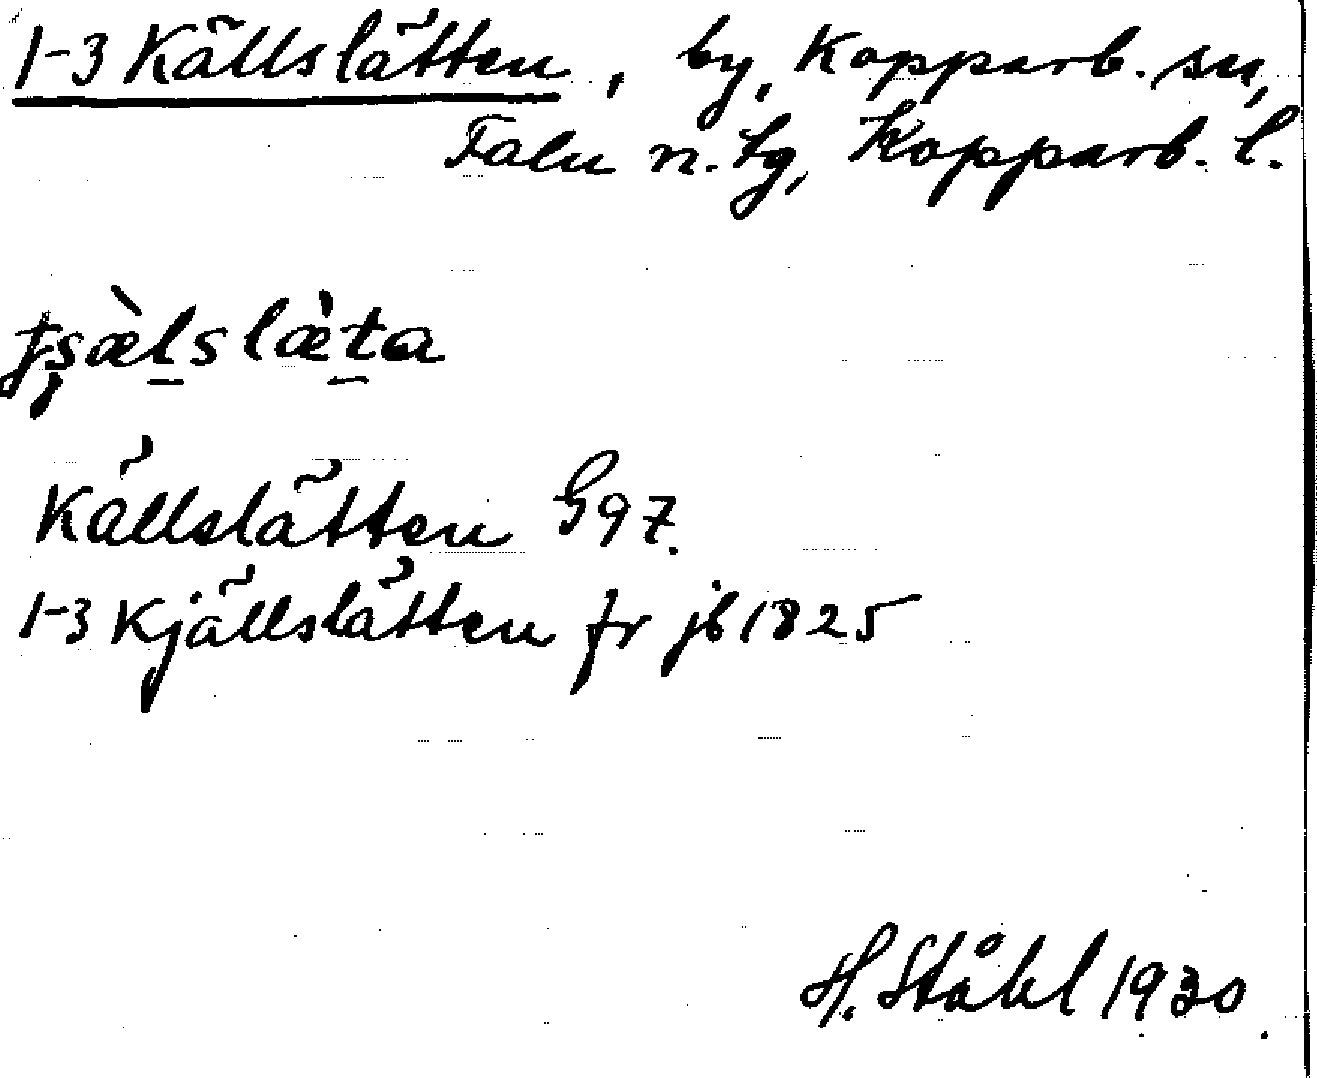 1-3 Källslätten, by, Kopparb. sn,
Falu n. tg, Kopparb. l.
ʈʂæ̀l̠slæ̀t̠a
Källslätten G97.
1-3 Kjällslätten fr jb 1825
H. Ståhl 1930.